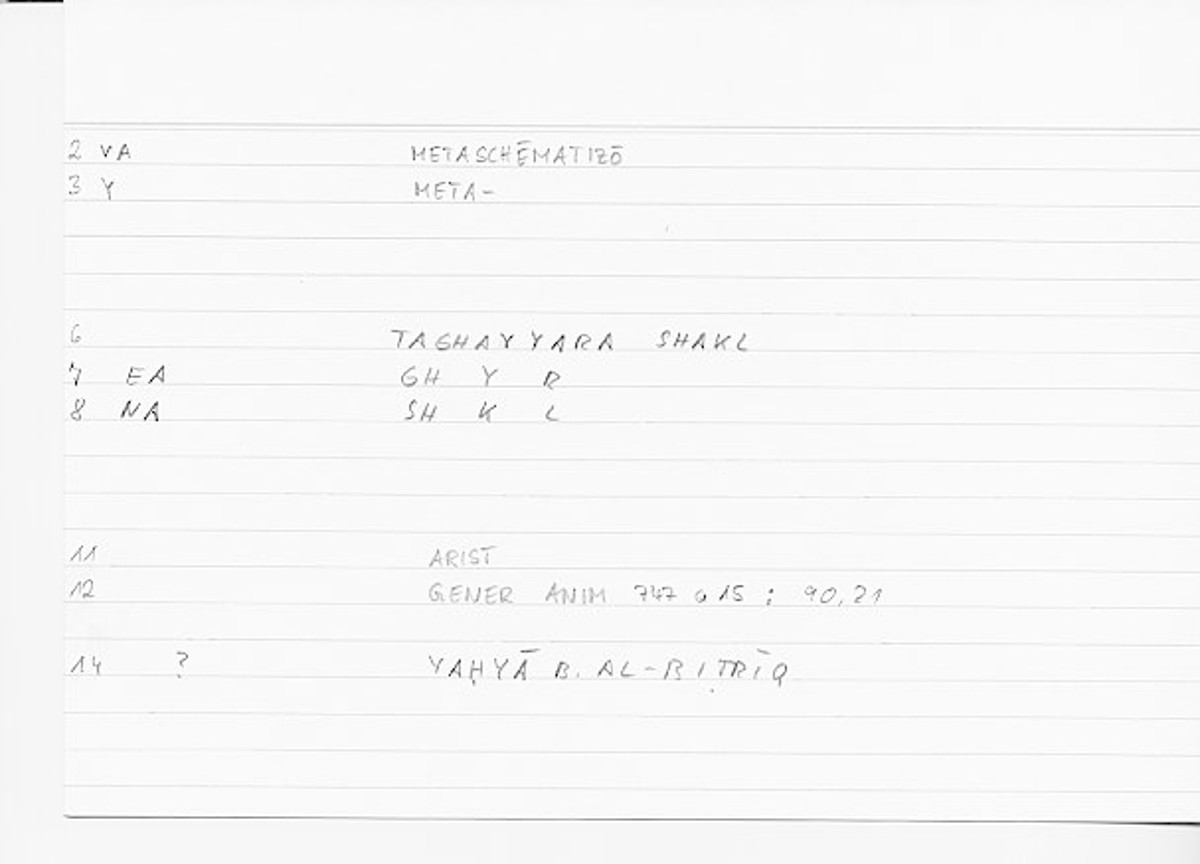 2 VA METASCHĒMATIZŌ
3 Y META-
6 TAGHAYYARA SHAKL
7 EA GH Y R
8 NA SH K L
11 ARIST
12 GENER ANIM 747 a 15 ; 90,21
14 ? YAḤYĀ B. AL-BIṬRĪQ